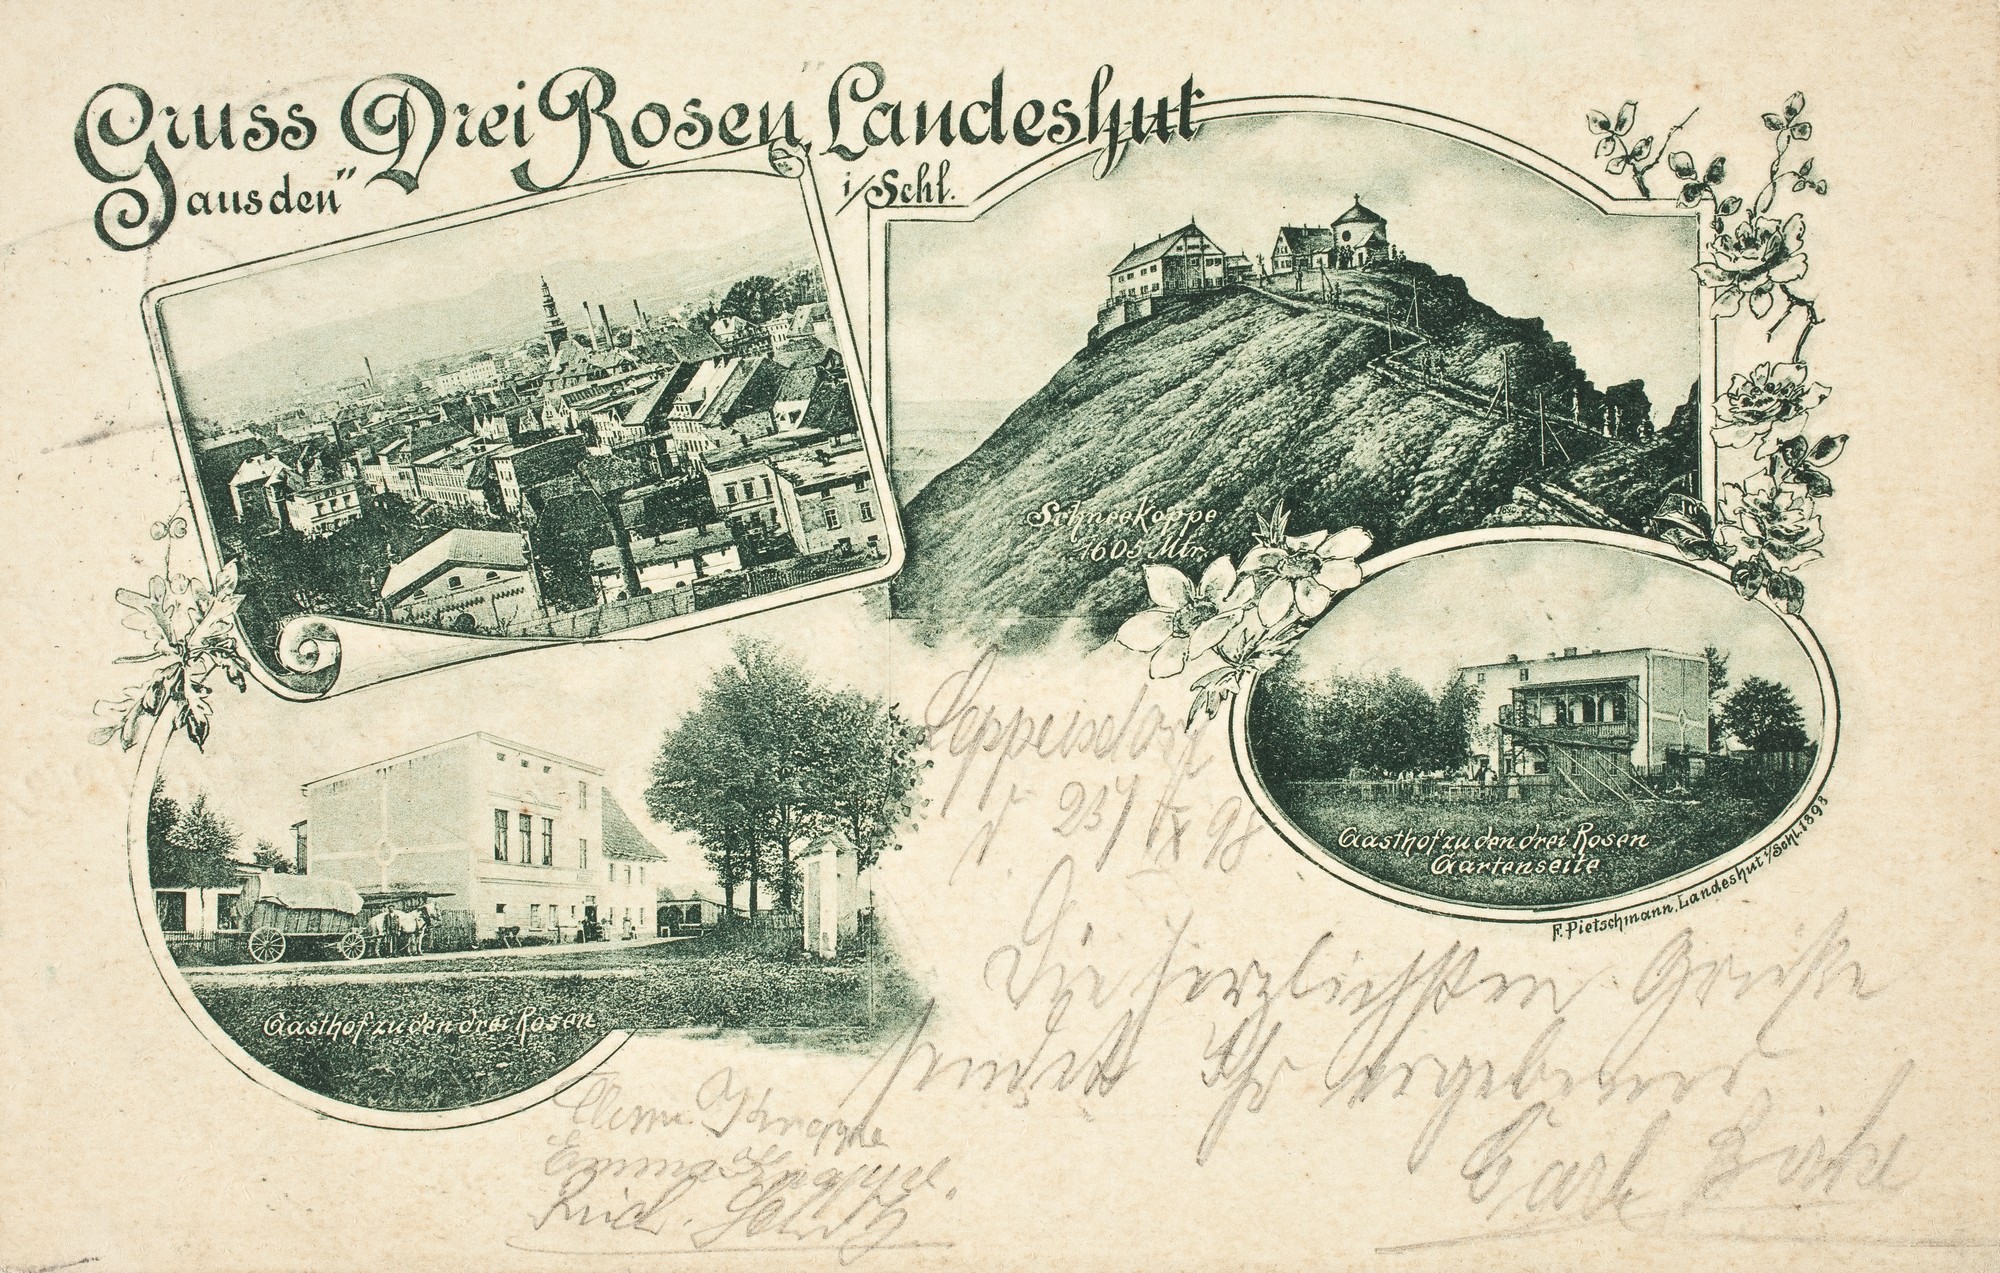 Gruss „Drei Rosen" Landeshut
aus den
i/Schl.
Schneekoppe
1605 Mtr.
Gasthof zu den drei Rosen
Gartenseite
F. Pietschmann, Landeshut i/Schl. 1893
Gasthof zu den drei Rosen
d 25/IX 98.
Die herzlichsten Grüße
sendet Ihr ergebener
Carl
Emma